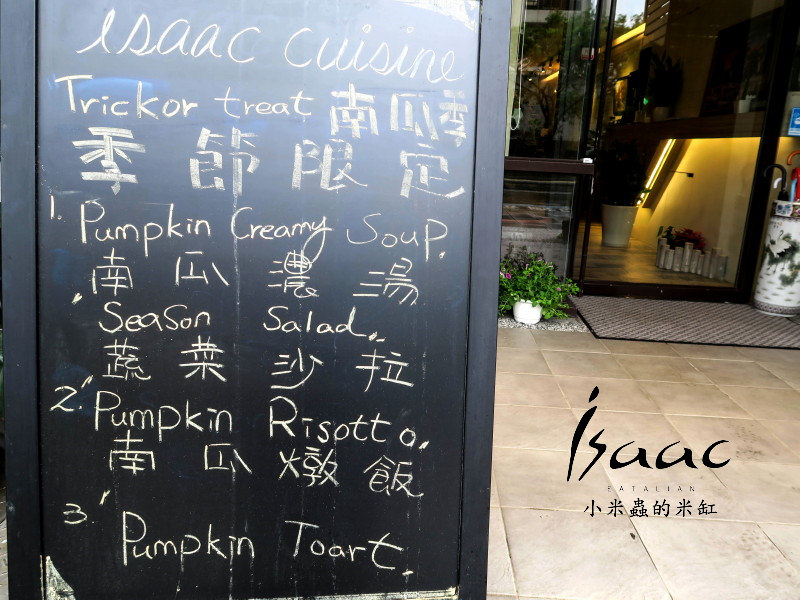 isaac cuisine
Trickor treat 南瓜季
季節限定
1. Pumpkin Creamy Soup.
南瓜濃湯
Season Salad.
蔬菜沙拉
2. Pumpkin Risotto.
南瓜燉飯
3. Pumpkin Toart.
isaac
EATALIAN
小米蟲的米缸